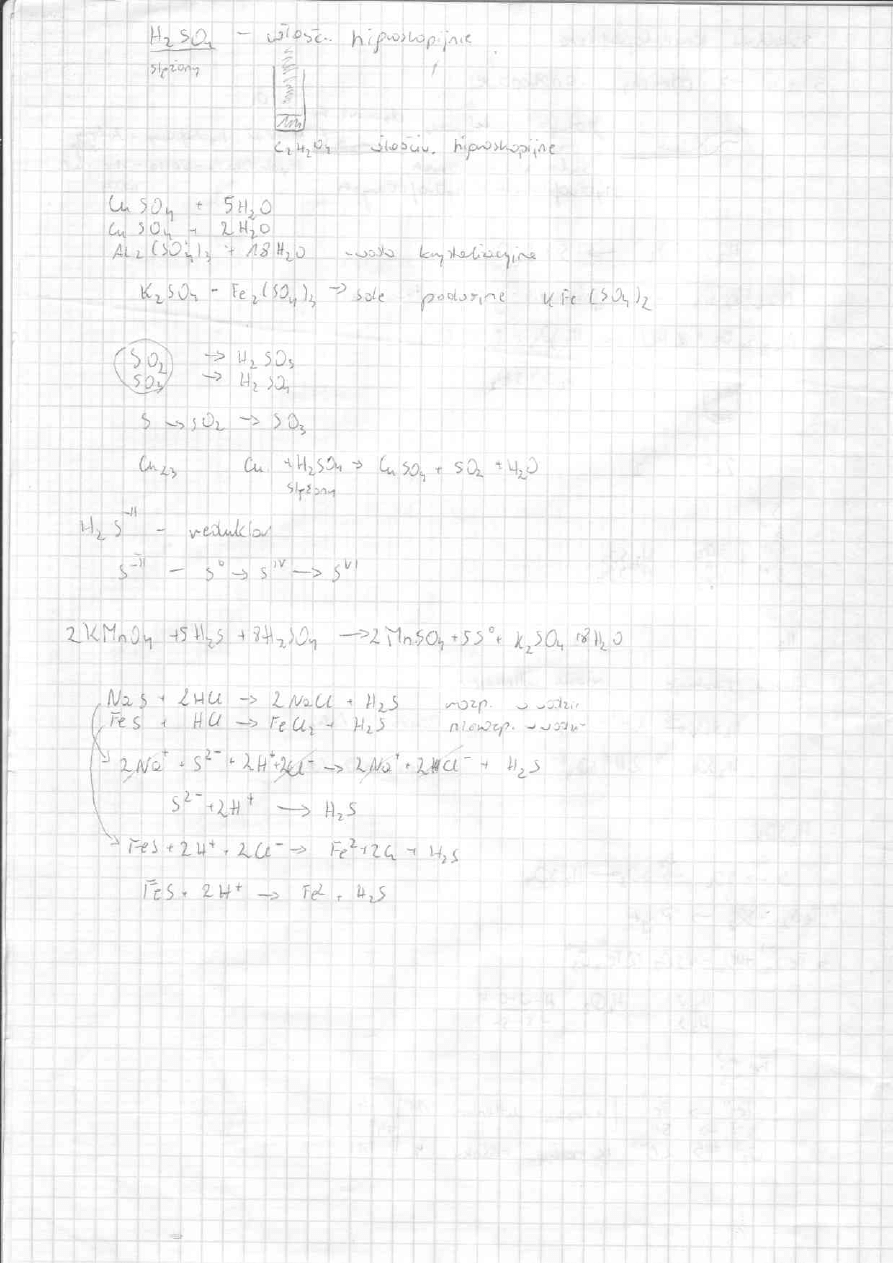 H₂SO₄ – właśc. higroskopijne
stężony
C₂H₂O₄ właściw. higroskopijne
CuSO₄ + 5H₂O
CuSO₄ - 2H₂O
Al₂(SO₄)₃ + 18H₂O - woda krystalizacyjne
K₂SO₄ - Fe₂(SO₄)₃ → sole podwójne KFe(SO₄)₂
SO₂ → H₂SO₃
SO₃ → H₂SO₄
S → SO₂ → SO₃
Cu + H₂SO₄ → CuSO₄ + SO₂ + H₂O
stężony
H₂S⁻ᴵᴵ - reduktor
S⁻ᴵᴵ – S⁰ → Sᴵⱽ → Sⱽᴵ
2KMnO₄ + 5H₂S + 8H₂SO₄ → 2MnSO₄ + 5S⁰ + K₂SO₄ + 8H₂O
Na₂S + 2HCl → 2NaCl + H₂S rozp. w wodzie
FeS + HCl → FeCl₂ + H₂S nierozp. w wodzie
2Na⁺ + S²⁻ + 2H⁺ + 2Cl⁻ → 2Na⁺ + 2Cl⁻ + H₂S
S²⁻ + 2H⁺ → H₂S
FeS + 2H⁺ + 2Cl⁻ → Fe² + 2Cl + H₂S
FeS + 2H⁺ → Fe² + H₂S